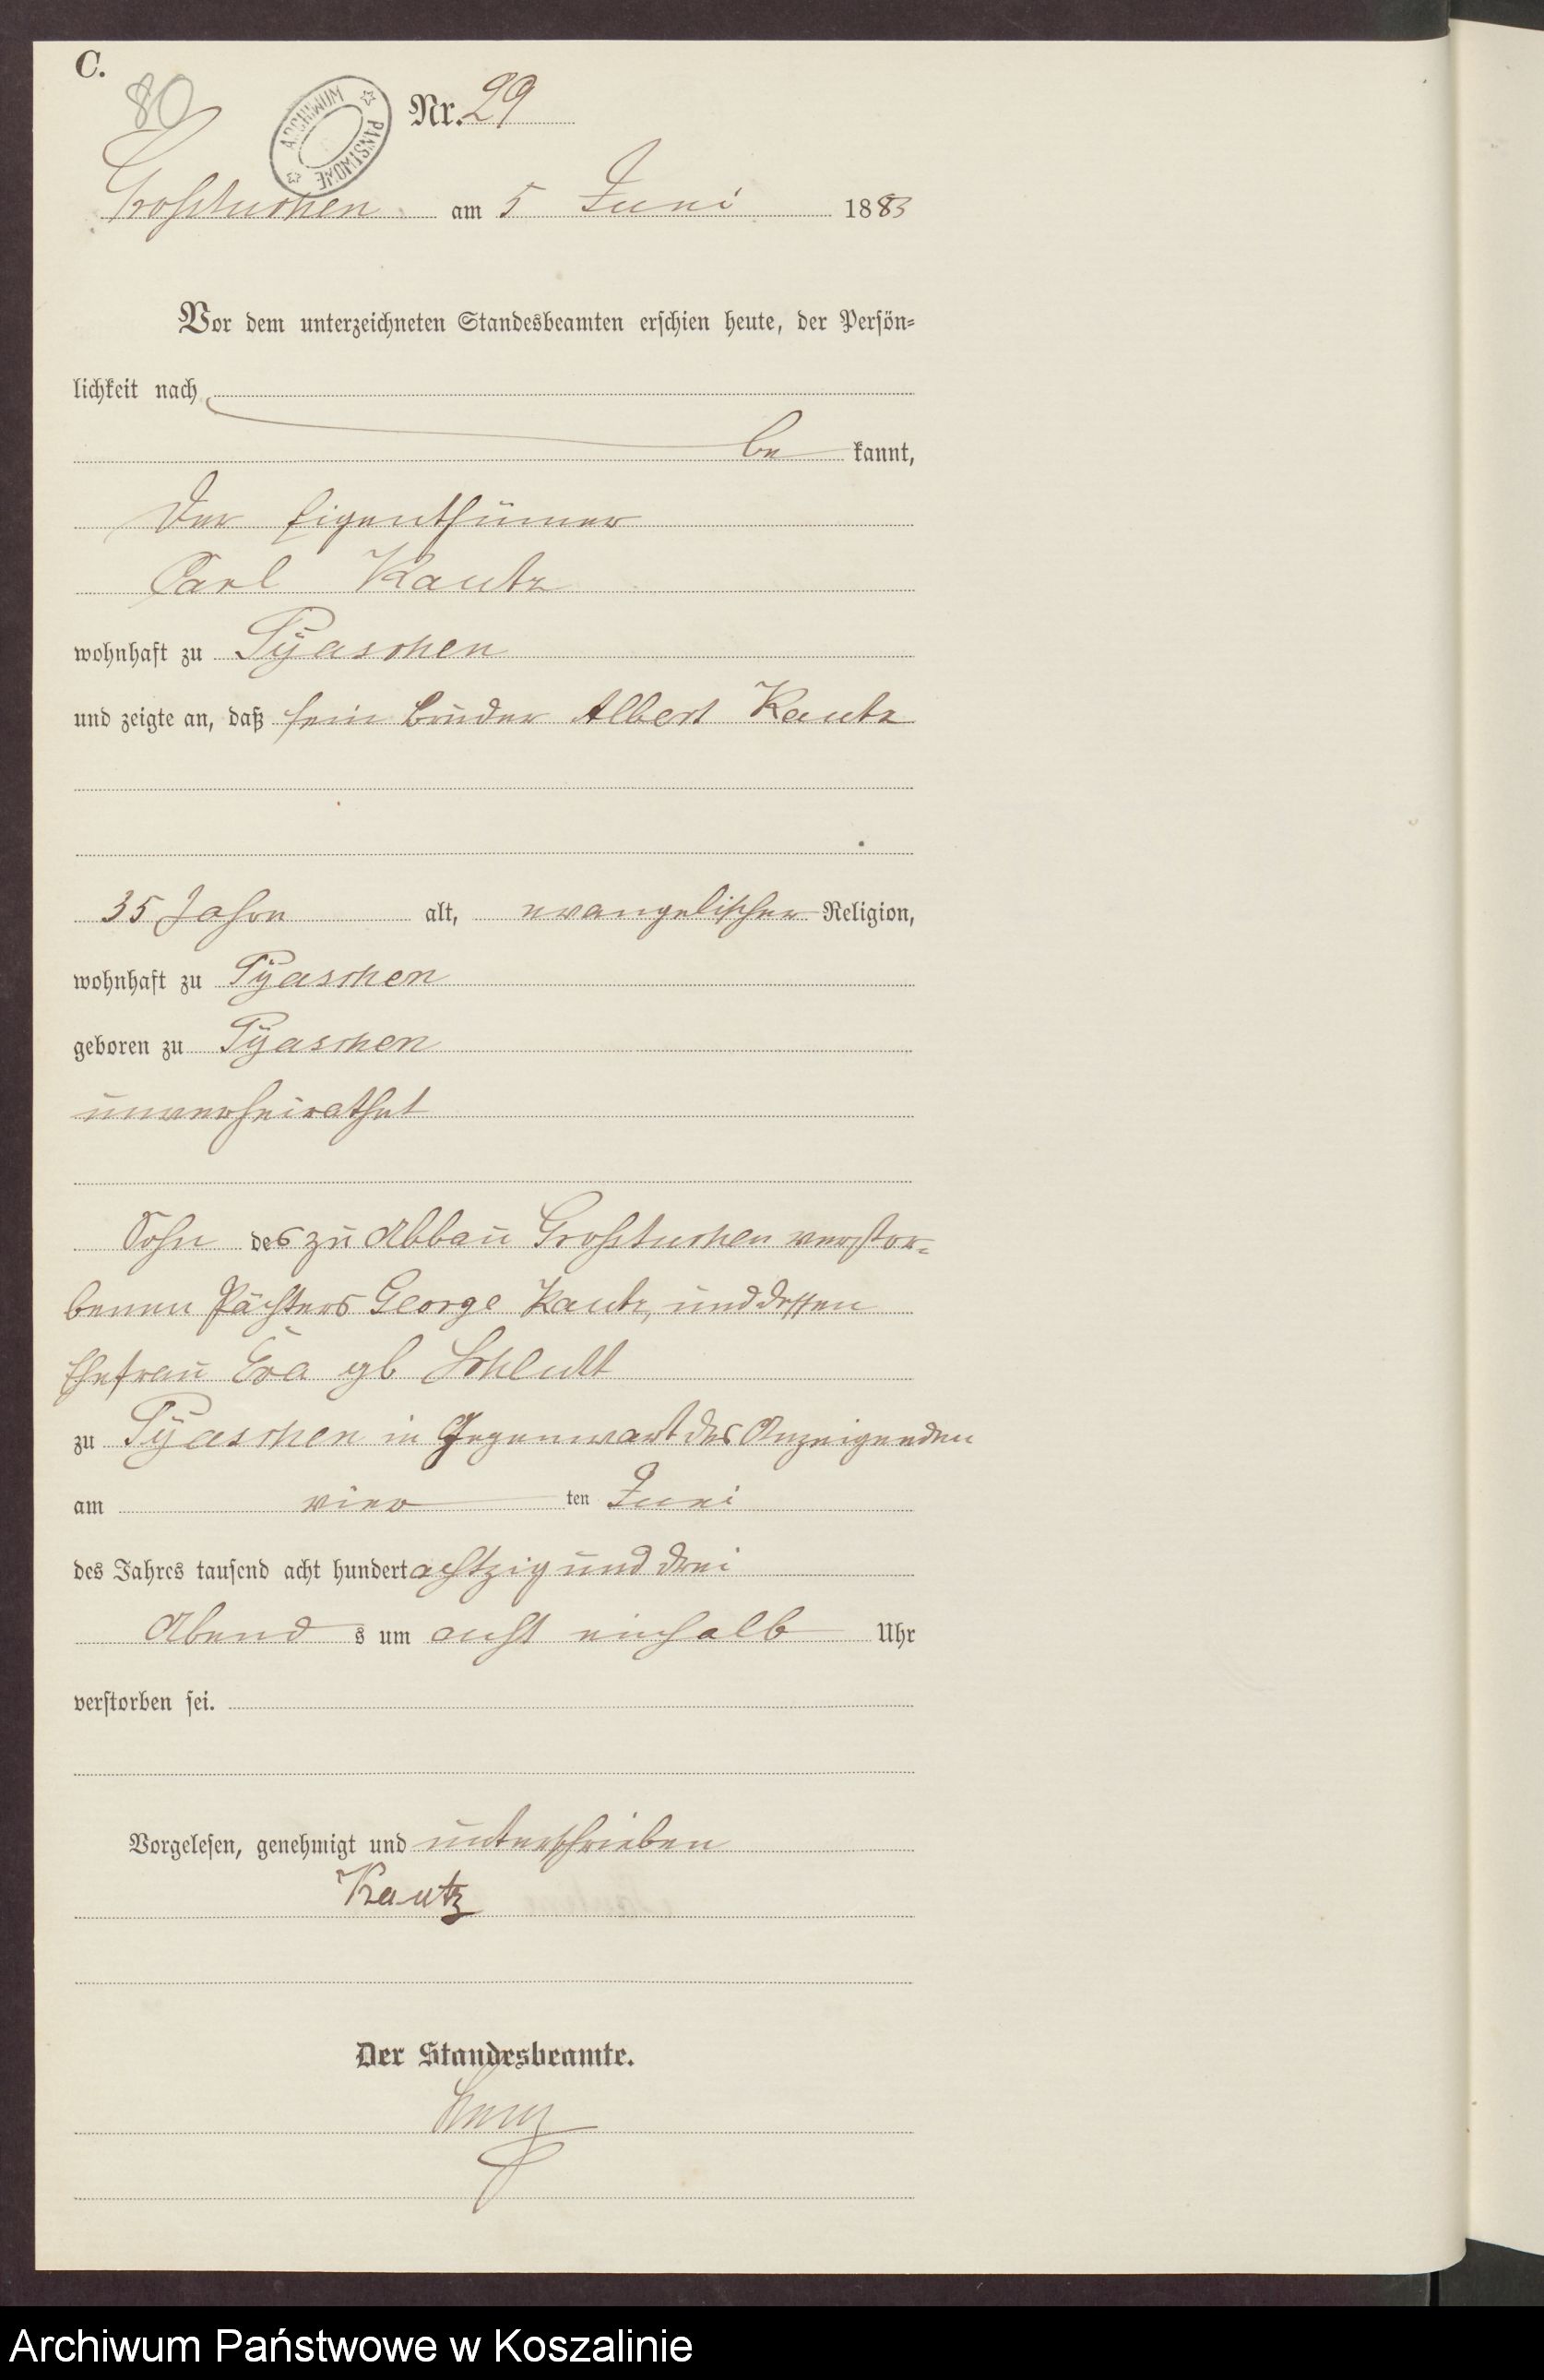 C.
80
ARCHIWUM PAŃSTWOWE
Nr. 29
Großtuchen am 5 Juni 1883
Vor dem unterzeichneten Standesbeamten erschien heute, der Persön=
lichkeit nach
be kannt,
Der Eigenthümer
Carl Kautz
wohnhaft zu Pÿaschen
und zeigte an, daß sein Bruder Albert Kautz
35 Jahre alt, evangelischer Religion,
wohnhaft zu Pÿaschen
geboren zu Pÿaschen
unverheirathet
Sohn des zu Abbau Großtuchen verstor=
benen Pächters George Kautz, und dessen
Ehefrau Eva gb
zu Pÿaschen in Gegenwart des Anzeigenden
am vier ten Juni
des Jahres tausend acht hundert achtzig und drei
Abend s um acht einhalb Uhr
verstorben sei.
Vorgelesen, genehmigt und unterschrieben
Kautz
Der Standesbeamte.
Archiwum Państwowe w Koszalinie